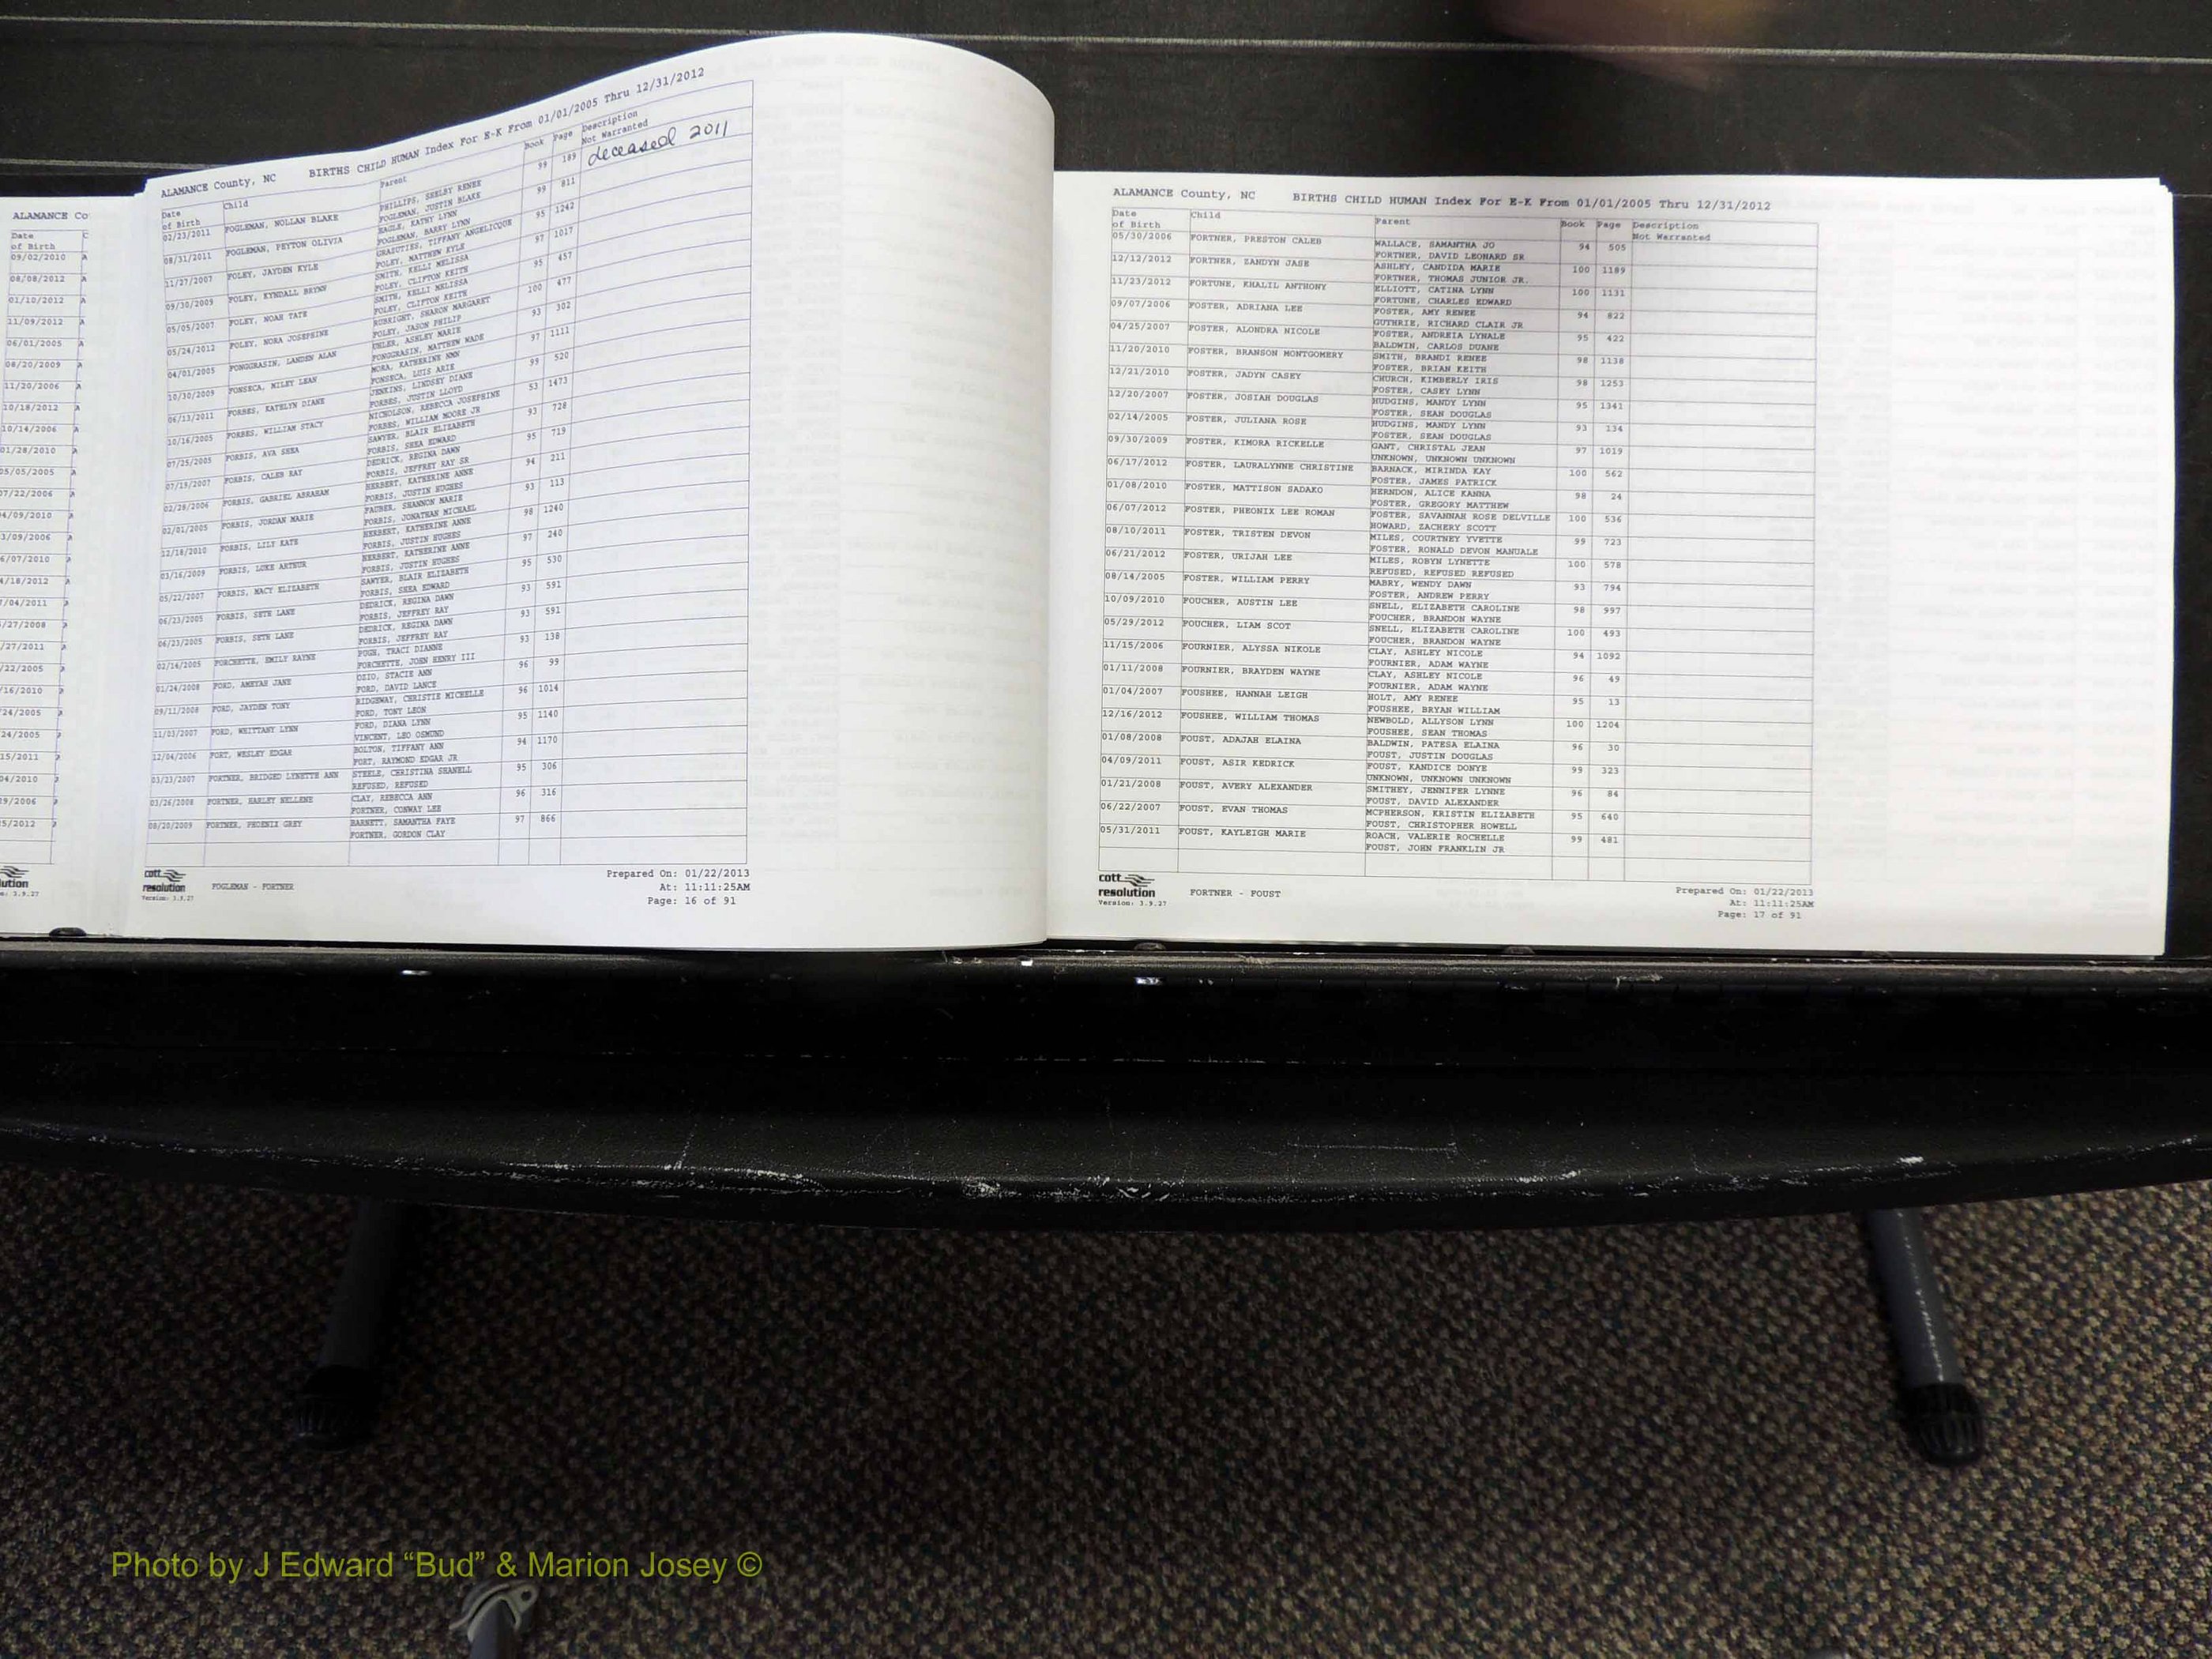 ALAMANCE Co
Date
of Birth
09/02/2010 A
08/08/2012 A
01/10/2012 A
11/09/2012 A
06/01/2005 A
08/20/2009 A
11/20/2006 A
10/18/2012 A
10/14/2006 A
01/28/2010 A
05/05/2005 A
ALAMANCE County, NC BIRTHS CHILD HUMAN Index For E-K From 01/01/2005 Thru 12/31/2012
Date of Birth Child Parent Book Page Description Not Warranted
02/23/2011 FOGLEMAN, NOLLAN BLAKE PHILLIPS, SHELBY RENEE 99 189 deceased 2011
FOGLEMAN, JUSTIN BLAKE
08/31/2011 FOGLEMAN, PEYTON OLIVIA EAGLE, KATHY LYNN 99 811
FOGLEMAN, BARRY LYNN
11/27/2007 FOLEY, JAYDEN KYLE GRABUTIES, TIFFANY ANGELICQUE 95 1242
FOLEY, MATTHEW KYLE
09/30/2009 FOLEY, KYNDALL BRYNN SMITH, KELLI MELISSA 97 1017
FOLEY, CLIFTON KEITH
05/05/2007 FOLEY, NOAH TATE SMITH, KELLI MELISSA 95 457
FOLEY, CLIFTON KEITH
05/24/2012 FOLEY, NORA JOSEPHINE RUBRIGHT, SHARON MARGARET 100 477
FOLEY, JASON PHILIP
04/01/2005 FONGGRASIN, LANDEN ALAN UHLER, ASHLEY MARIE 93 302
FONGGRASIN, MATTHEW WADE
10/30/2009 FONSECA, MILEY LEAN MORA, KATHERINE NMN 97 1111
FONSECA, LUIS ARIE
06/13/2011 FORBES, KATELYN DIANE JENKINS, LINDSEY DIANE 99 520
FORBES, JUSTIN LLOYD
10/16/2005 FORBES, WILLIAM STACY NICHOLSON, REBECCA JOSEPHINE 53 1473
FORBES, WILLIAM MOORE JR
07/25/2005 FORBIS, AVA SHEA SAWYER, BLAIR ELIZABETH 93 728
FORBIS, SHEA EDWARD
07/19/2007 FORBIS, CALEB RAY DEDRICK, REGINA DAWN 95 719
FORBIS, JEFFREY RAY SR
02/28/2006 FORBIS, GABRIEL ABRAHAM HERBERT, KATHERINE ANNE 94 211
FORBIS, JUSTIN HUGHES
02/01/2005 FORBIS, JORDAN MARIE FAUBER, SHANNON MARIE 93 113
FORBIS, JONATHAN MICHAEL
12/18/2010 FORBIS, LILY KATE HERBERT, KATHERINE ANNE 98 1240
FORBIS, JUSTIN HUGHES
03/16/2009 FORBIS, LUKE ARTHUR HERBERT, KATHERINE ANNE 97 240
FORBIS, JUSTIN HUGHES
05/22/2007 FORBIS, MACY ELIZABETH SAWYER, BLAIR ELIZABETH 95 530
FORBIS, SHEA EDWARD
06/23/2005 FORBIS, SETH LANE DEDRICK, REGINA DAWN 93 591
FORBIS, JEFFREY RAY
06/23/2005 FORBIS, SETH LANE DEDRICK, REGINA DAWN 93 591
FORBIS, JEFFREY RAY
02/14/2005 FORCHETTE, EMILY RAYNE PUGH, TRACI DIANNE 93 138
FORCHETTE, JOHN HENRY III
01/24/2008 FORD, AMEYAH JANE OZIO, STACIE ANN 96 99
FORD, DAVID LANCE
09/11/2008 FORD, JAYDEN TONY RIDGEWAY, CHRISTIE MICHELLE 96 1014
FORD, TONY LEON
11/03/2007 FORD, WHITTANY LYNN FORD, DIANA LYNN 95 1140
VINCENT, LEO OSMUND
12/04/2006 FORT, WESLEY EDGAR BOLTON, TIFFANY ANN 94 1170
FORT, RAYMOND EDGAR JR
03/23/2007 FORTNER, BRIDGED LYNETTE ANN STEELE, CHRISTINA SHANELL 95 306
REFUSED, REFUSED
03/26/2008 FORTNER, HARLEY NELLENE CLAY, REBECCA ANN 96 316
FORTNER, CONWAY LEE
08/20/2009 FORTNER, PHOENIX GREY BARNETT, SAMANTHA FAYE 97 866
FORTNER, GORDON CLAY
cott resolution
Version: 3.9.27
FOGLEMAN - FORTNER
Prepared On: 01/22/2013
At: 11:11:25AM
Page: 16 of 91
ALAMANCE County, NC BIRTHS CHILD HUMAN Index For E-K From 01/01/2005 Thru 12/31/2012
Date of Birth Child Parent Book Page Description Not Warranted
05/30/2006 FORTNER, PRESTON CALEB WALLACE, SAMANTHA JO 94 505
FORTNER, DAVID LEONARD SR
12/12/2012 FORTNER, ZANDYN JASE ASHLEY, CANDIDA MARIE 100 1189
FORTNER, THOMAS JUNIOR JR.
11/23/2012 FORTUNE, KHALIL ANTHONY ELLIOTT, CATINA LYNN 100 1131
FORTUNE, CHARLES EDWARD
09/07/2006 FOSTER, ADRIANA LEE FOSTER, AMY RENEE 94 822
GUTHRIE, RICHARD CLAIR JR
04/25/2007 FOSTER, ALONDRA NICOLE FOSTER, ANDREIA LYNALE 95 422
BALDWIN, CARLOS DUANE
11/20/2010 FOSTER, BRANSON MONTGOMERY SMITH, BRANDI RENEE 98 1138
FOSTER, BRIAN KEITH
12/21/2010 FOSTER, JADYN CASEY CHURCH, KIMBERLY IRIS 98 1253
FOSTER, CASEY LYNN
12/20/2007 FOSTER, JOSIAH DOUGLAS HUDGINS, MANDY LYNN 95 1341
FOSTER, SEAN DOUGLAS
02/14/2005 FOSTER, JULIANA ROSE HUDGINS, MANDY LYNN 93 134
FOSTER, SEAN DOUGLAS
09/30/2009 FOSTER, KIMORA RICKELLE GANT, CHRISTAL JEAN 97 1019
UNKNOWN, UNKNOWN UNKNOWN
06/17/2012 FOSTER, LAURALYNNE CHRISTINE BARNACK, MIRINDA KAY 100 562
FOSTER, JAMES PATRICK
01/08/2010 FOSTER, MATTISON SADAKO HERNDON, ALICE KANNA 98 24
FOSTER, GREGORY MATTHEW
06/07/2012 FOSTER, PHEONIX LEE ROMAN FOSTER, SAVANNAH ROSE DELVILLE 100 536
HOWARD, ZACHERY SCOTT
08/10/2011 FOSTER, TRISTEN DEVON MILES, COURTNEY YVETTE 99 723
FOSTER, RONALD DEVON MANUALE
06/21/2012 FOSTER, URIJAH LEE MILES, ROBYN LYNETTE 100 578
REFUSED, REFUSED REFUSED
08/14/2005 FOSTER, WILLIAM PERRY MABRY, WENDY DAWN 93 794
FOSTER, ANDREW PERRY
10/09/2010 FOUCHER, AUSTIN LEE SNELL, ELIZABETH CAROLINE 98 997
FOUCHER, BRANDON WAYNE
05/29/2012 FOUCHER, LIAM SCOT SNELL, ELIZABETH CAROLINE 100 493
FOUCHER, BRANDON WAYNE
11/15/2006 FOURNIER, ALYSSA NIKOLE CLAY, ASHLEY NICOLE 94 1092
FOURNIER, ADAM WAYNE
01/11/2008 FOURNIER, BRAYDEN WAYNE CLAY, ASHLEY NICOLE 96 49
FOURNIER, ADAM WAYNE
01/04/2007 FOUSHEE, HANNAH LEIGH HOLT, AMY RENEE 95 13
FOUSHEE, BRYAN WILLIAM
12/16/2012 FOUSHEE, WILLIAM THOMAS NEWBOLD, ALLYSON LYNN 100 1204
FOUSHEE, SEAN THOMAS
01/08/2008 FOUST, ADAJAH ELAINA BALDWIN, PATESA ELAINA 96 30
FOUST, JUSTIN DOUGLAS
04/09/2011 FOUST, ASIR KEDRICK FOUST, KANDICE DONYE 99 323
UNKNOWN, UNKNOWN UNKNOWN
01/21/2008 FOUST, AVERY ALEXANDER SMITHEY, JENNIFER LYNNE 96 84
FOUST, DAVID ALEXANDER
06/22/2007 FOUST, EVAN THOMAS MCPHERSON, KRISTIN ELIZABETH 95 640
FOUST, CHRISTOPHER HOWELL
05/31/2011 FOUST, KAYLEIGH MARIE ROACH, VALERIE ROCHELLE 99 481
FOUST, JOHN FRANKLIN JR
cott resolution
Version: 3.9.27
FORTNER - FOUST
Prepared On: 01/22/2013
At: 11:11:25AM
Page: 17 of 91
Photo by J Edward “Bud” & Marion Josey ©